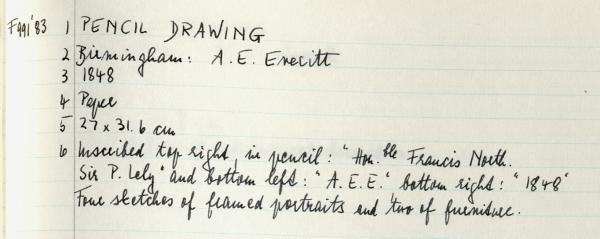 F991'83 1 PENCIL DRAWING
2 Birmingham: A. E. Everitt
3 1848
4 Paper
5 27 x 31.6 cm
6 Inscribed top right, in pencil: "Hon.ble Francis North.
Sir P. Lely" and bottom left: "A.E.E." bottom right: "1848"
Four sketches of framed portraits and two of furniture.